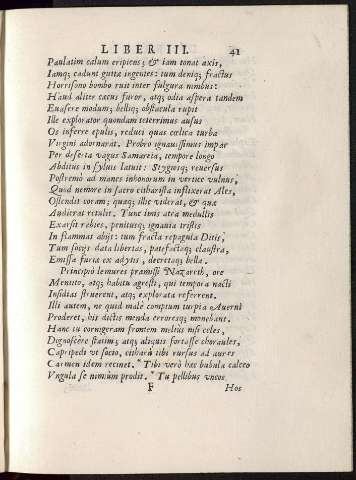 LIBER III. 41
Paulatim cælum eripiens; & iam tonat axis,
Iamq; cadunt guttæ ingentes: tum deniq; fractus
Horrisono bombo ruit inter fulgura nimbus:
Haud aliter cæcus furor, atq; odia aspera tandem
Euasere modum; belliq; obstacula rupit
Ille explorator quondam teterrimus ausus
Os inferre epulis, reduci quas cœlica turba
Virgini adornarat. Probro ignauissimus impar
Per deserta vagus Samareia, tempore longo
Abditus in syluis latuit: Stygiosq; reuersus
Postremò ad manes inhonorum in vertice vulnus,
Quod nemore in sacro citharista inflixerat Ales,
Ostendit coram; quæq; illic viderat, & quæ
Audierat retulit. Tunc imis atra medullis
Exarsit rabies, penitusq; ignauia tristis
In flammas abijt: tum fracta repagula Ditis,
Tum socijs data libertas, patefactaq; claustra,
Emissæ furiæ ex adytis, decretaq; bella.
Principiò lemures præmissi Nazareth, ore
Mentito, atq; habitu agresti, qui tempora nacti
Insidias struerent, atq; explorata referrent.
Illi autem, ne quid malè comptum turpia Auerni
Proderet, his dictis menda erroresq; monebant.
Hanc tu cornigeram frontem meliùs nisi celes,
Dignoscere statim; atq; aliquis fortasse choraules,
Capripedi vt socio, citharâ tibi rursus ad aures
Carmen idem recinet. Tibi verò hæc bubula calceo
Vngula se nimiùm prodit. Tu pellibus vncos
F Hos